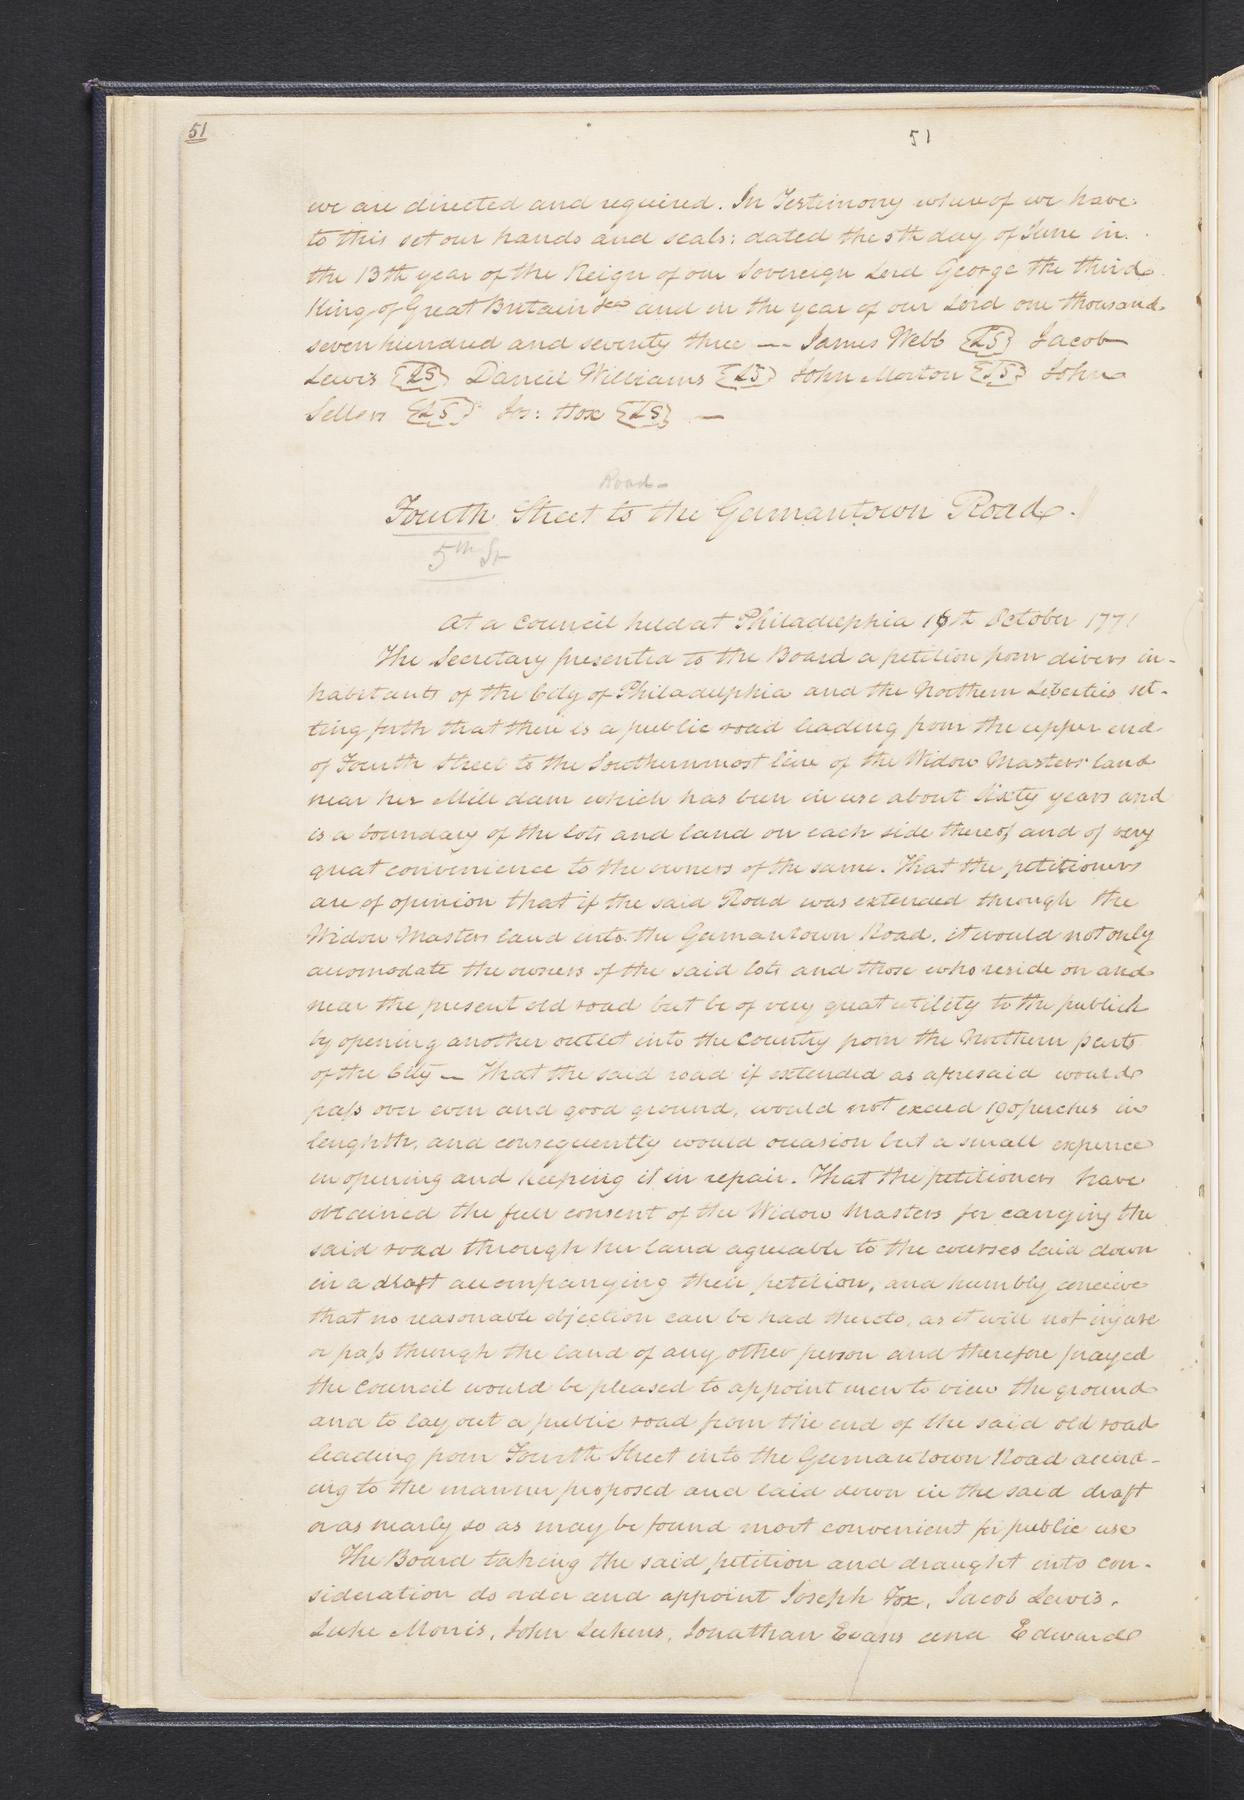 51
51
we are directed and required. In Testimony whereof we have
to this set our hands and seals: dated the 5th day of June in
the 13th year of the Reign of our Sovereign Lord George the third
King of Great Britain &ca and in the year of our Lord one thousand
seven hundred and seventy three — James Webb {LS} Jacob
Lewis {LS} Daniel Williams {LS} John Morton {LS} John
Sellers {LS} Jos: Fox {LS} —
Road
Fourth Street to the Germantown Road.
5th St
At a Council held at Philadelphia 16th October 1771
The Secretary presented to the Board a petition from divers in-
habitants of the City of Philadelphia and the Northern Liberties set-
ting forth that there is a public road leading from the upper end
of Fourth Street to the Southernmost line of the Widow Masters' land
near her Mill dam which has been in use about Sixty years and
is a boundary of the lots and land on each side thereof and of very
great convenience to the owners of the same. That the petitioners
are of opinion that if the said Road was extended through the
Widow Masters land into the Germantown Road, it would not only
accomodate the owners of the said lots and those who reside on and
near the present old road but be of very great utility to the publick
by opening another outlet into the Country from the Northern parts
of the City — That the said road if extended as aforesaid would
pass over even and good ground, would not exceed 190 perches in
lenghth, and consequently would occasion but a small expence
in opening and keeping it in repair. That the petitioners have
obtained the full consent of the Widow Masters for carrying the
said road through her land agreeable to the courses laid down
in a draft accompanying their petition, and humbly conceive
that no reasonable objection can be had thereto, as it will not injure
or pass through the land of any other person and therefore prayed
the Council would be pleased to appoint men to view the ground
and to lay out a public road from the end of the said old road
leading from Fourth Street into the Germantown Road accord-
ing to the manner proposed and laid down in the said draft
or as nearly so as may be found most convenient for public use
The Board taking the said petition and draught into con-
sideration do order and appoint Joseph Fox, Jacob Lewis,
Luke Morris, John Lukens, Jonathan Evans and Edward